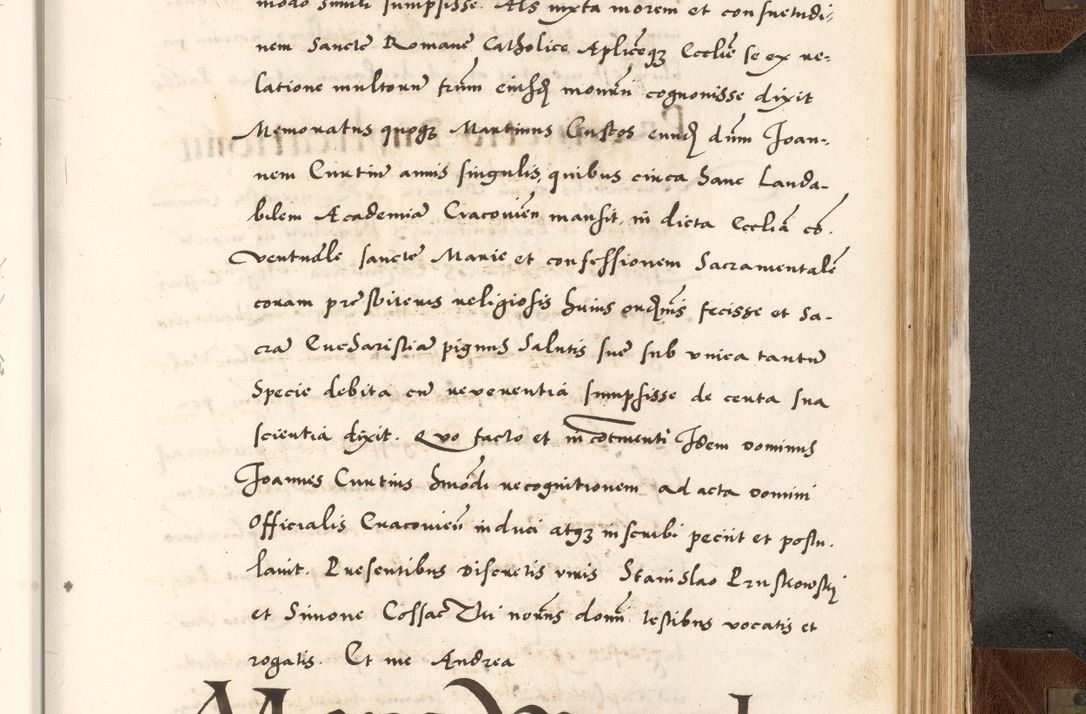 modo simili sumpsisse. Als iuxta morem et consuetudi-
nem Sancte Romane Catholice Aplicęqz Ecclie se ex re-
latione multorum frūm eiusdē monrii cognouisse dixit
Memoratus quoqz Martinus Custos eundē dnm Joan-
nem Curtiū annis singulis, quibus circa hanc Lauda-
bilem Academiā Cracouień mansit, in dicta Eccliā cō-
ventuāle sancte Marie et confessionem Sacramentalē
coram presbiteris religiosis huius ordinis fecisse et Sa-
crā Eucharistiā pignus Salutis sue sub vnica tantū
Specie debita cū reuerentiā sumpsisse de certa sua
scientiā dixit. Quo facto et in cōtinenti Idem Dominus
Joannes Curtius hmōdi recognitionem ad acta Domini
Officialis Cracouień induci atqz inscribi petiit et postu-
lauit. Presentibus Discretis viris Stanislao Pruskowskj
et Simone Cossac Dni norūs domī testibus vocatis et
rogatis. Et me Andrea